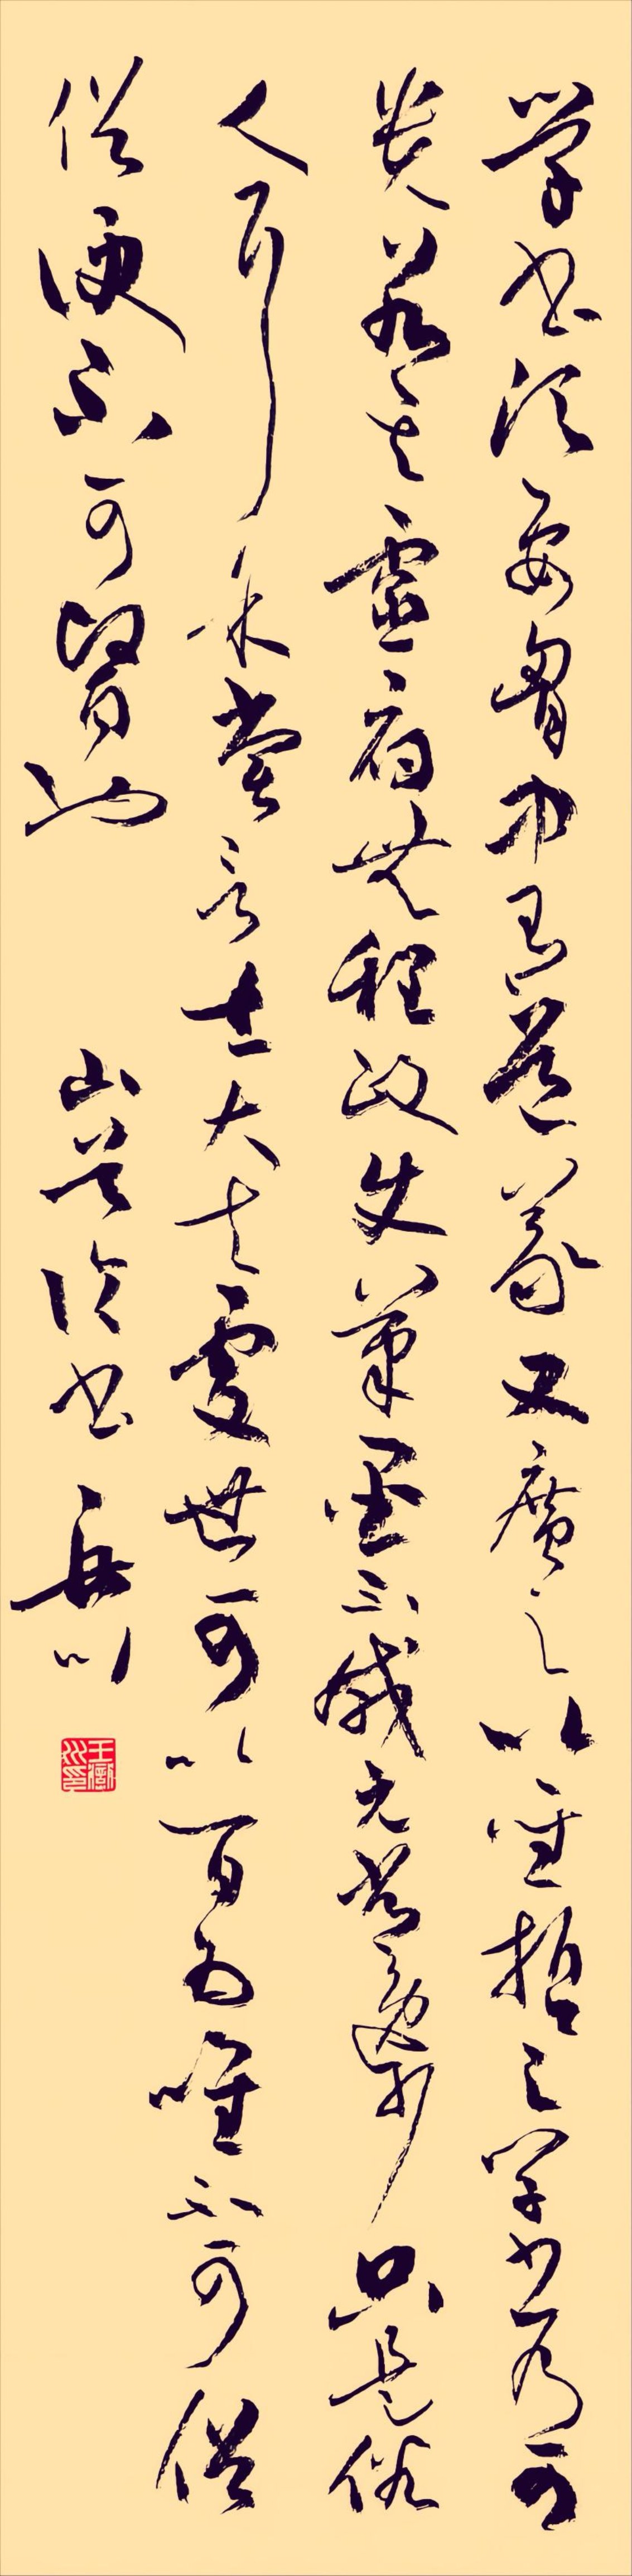 学书须要胸中有道義又廣之以聖哲之学书乃可
貴若其靈府無程政使筆墨不减元常逸少只是俗
人耳余嘗言士大夫處世可以百为唯不可俗
俗便不可醫也 山谷论书 岳川
王嶽川印